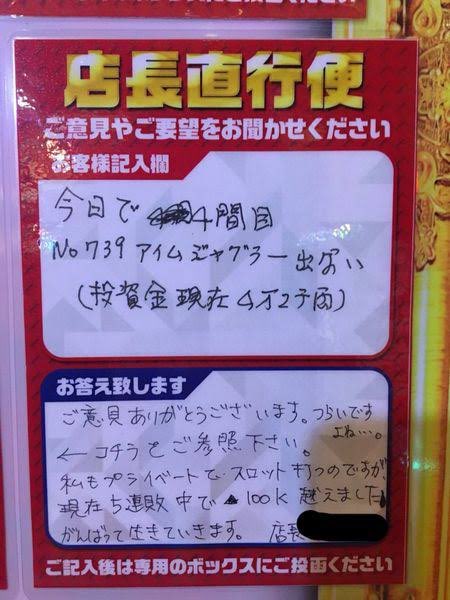 店長直行便
ご意見やご要望をお聞かせください
お客様記入欄
今日で 4間目
No739 アイムジャグラー出ない
(投資金現在4万2千両)
お答え致します
ご意見ありがとうございます。つらいです
よね…。
← コチラをご参照下さい。
私もプライベートでスロット打つのですが、
現在5連敗中で 100k 越えました
がんばって生きていきます。 店長
ご記入後は専用のボックスにご投函ください